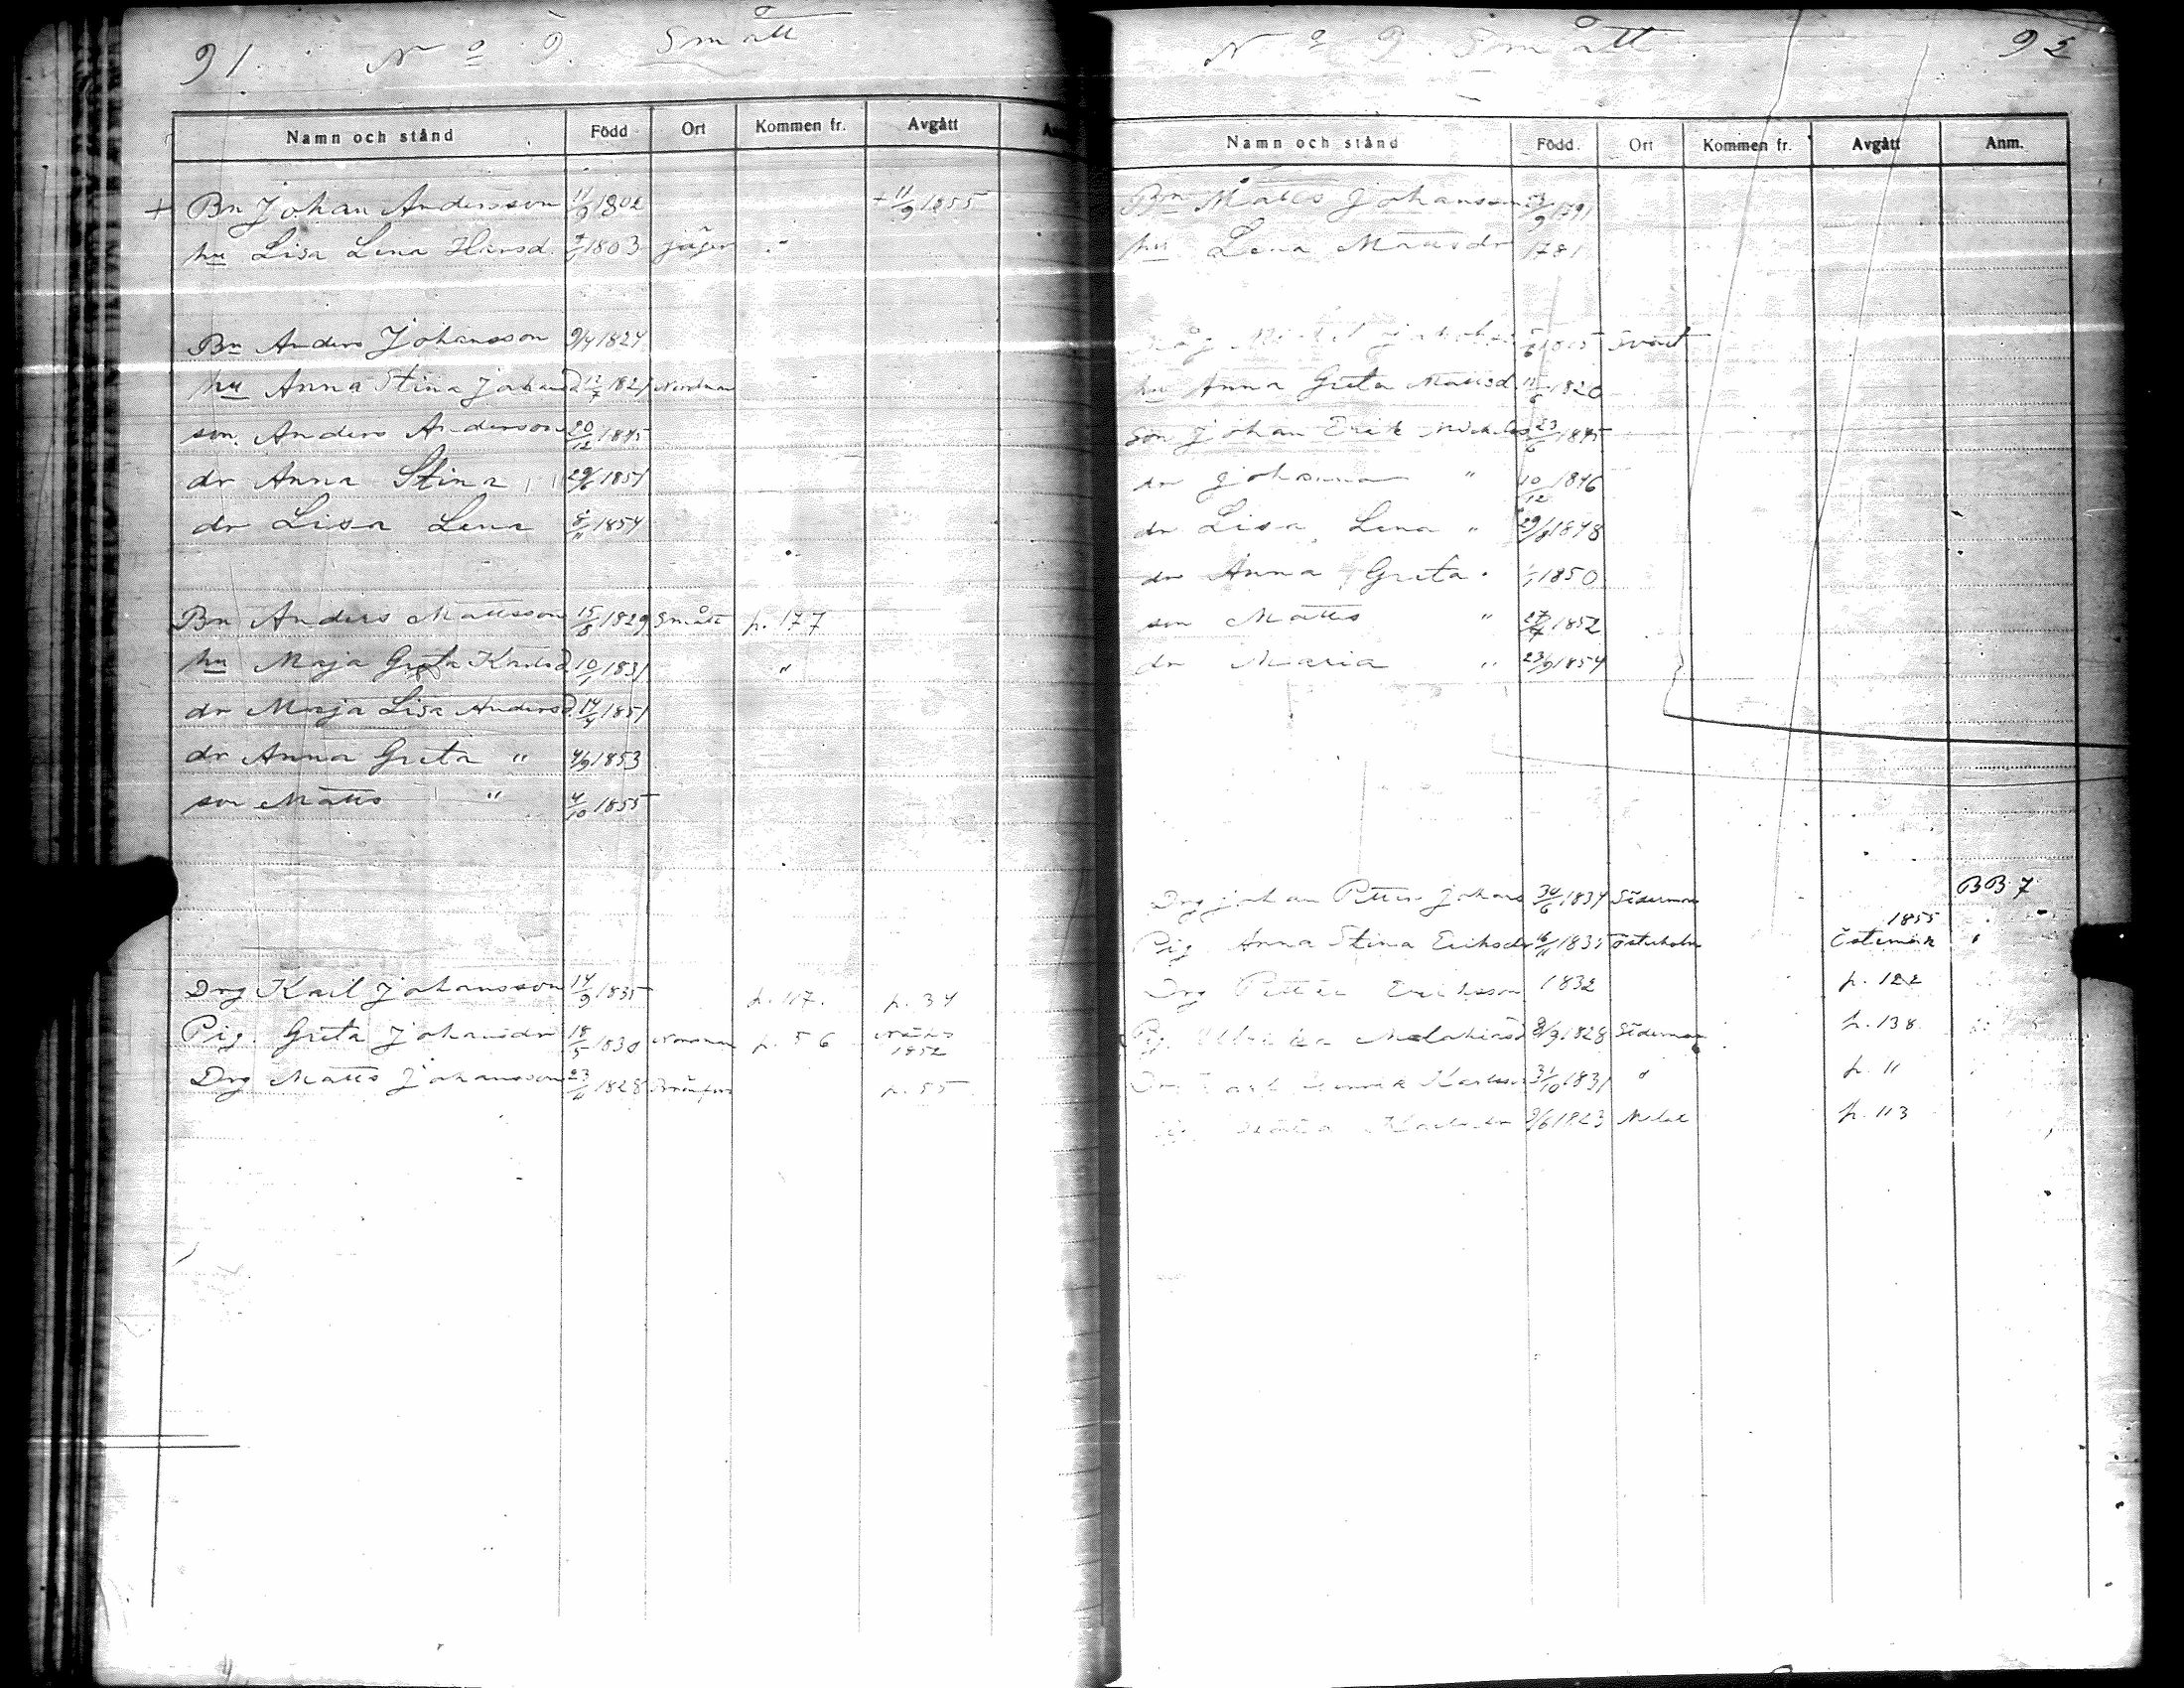 91. No 9. Smått
Namn och stånd Född Ort Kommen fr. Avgått
+ Bn Johan Andersson 11/9 1802 + 11/9 1855
hu Lisa Lena Hansd. 1803 Jäger "
Bn Anders Johansson 9/4 1824
hu Anna Stina Johansd 12/7 182 Norrnäs
son Anders Andersson 20/12 1845
dr Anna Stina " 1851
dr Lisa Lena 8/11 1854
Bn Anders Mattsson 15/8 1829 Smått p. 177
hu Maja Greta Karlsd 10/1 1831 "
dr Maja Lisa Andersd. 14/4 1851
dr Anna Greta " 4/9 1853
son Matts " 4/10 1855
Drg Karl Johansson 14/9 1835 p. 117. p. 34
Pig. Greta Johansdr 18/5 1830 p. 56 1852
Drg Matts Johansson 23/11 1828 p. 55
No 9. Smått 92
Namn och stånd Född. Ort Kommen fr. Avgått Anm.
Bn Matts Johansson /9 1791
hu Lena Mattsdr 1781
Måg Mickel
hu Anna Greta Mattsd. /6 1820
son Johan Erik Mickels 23/6 1845
dr Johanna " 10/12 1846
dr Lisa Lena " 29/8 1848
dr Anna Greta " 1/1 1850
son Matts " 1852
dr Maria " 23/9 1854
Drg Johan Petter Johans 1834 Söderman BB 7
Pig Anna Stina Eriksdr 16/11 1835 Österholm 1855 Östermark "
Drg Petter Eriksson 1832 p. 122
Pg. Ulrika 8/9 1828 Söderman p. 138
Karlsson 31/10 1831 " p. 11
Karlsdr 9/6 1823 p. 113